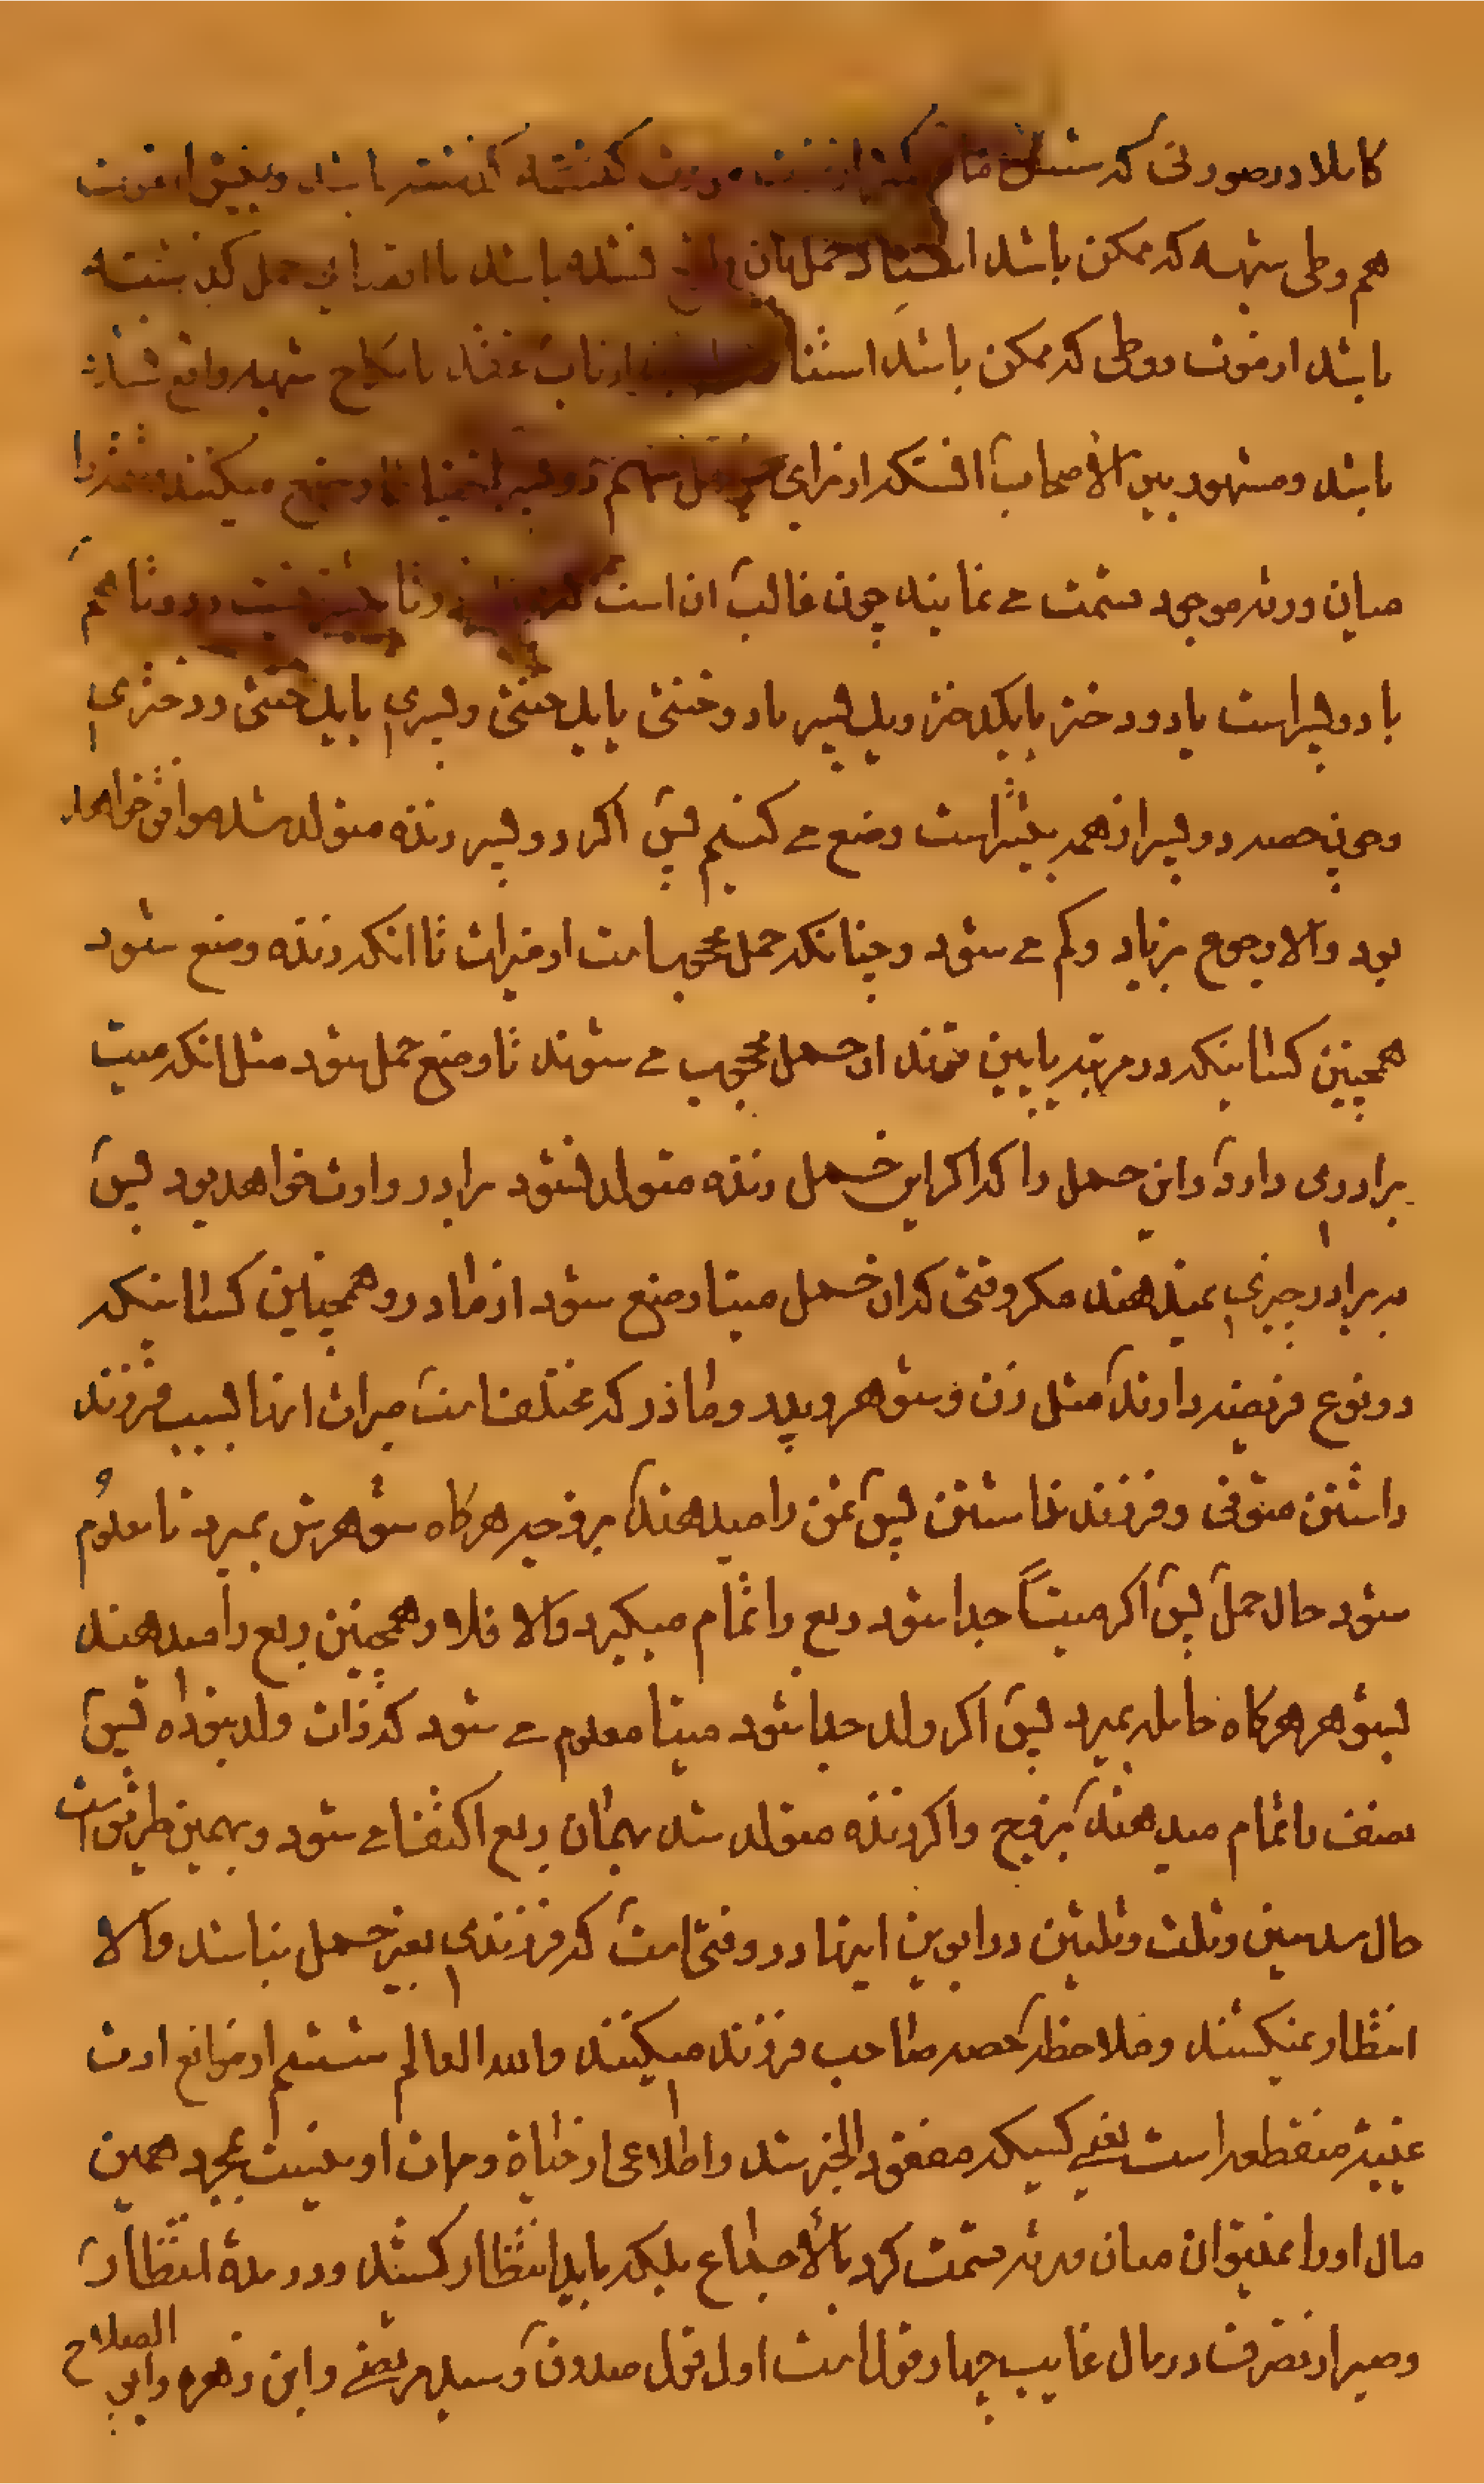 کاملا در صورتی که شش ماه گذشته باشد و پیش از فوت
هم وطی شبهه که ممکن باشد استناد حمل بان واقع نشده باشد یا اقصای حمل گذشته
باشد از فوت و وطی که ممکن باشد استناد عقد یا نکاح شبهه واقع شده
باشد و مشهور بین الاصحاب انستکه از برای حمل سهم دو پسر احتیاطا وضع میکنند و تتمه را
میان ورثه موجود قسمت می نمایند چون غالب ان است که زیاده بر دو تا نیست و دو تا هم
یا دو پسر است یا دو دختر یا یکدختر و یک پسر یا دو خنثی یا یک خنثی و پسری یا یک خنثی و دختری
و چون حصه دو پسر از همه بیشتر است وضع می کنیم پس اکر دو پسر زنده متولد شد موافق خواهد
بود والا رجوع بزیاد و کم می شود و چنانکه حمل محجوب است از میراث تا انکه زنده وضع شود
همچنین کسانیکه در مرتبه پایین ترند از حمل محجوب می شوند تا وضع حمل شود مثل انکه میت
برادری دارد و این حمل را که اکر این حمل زنده متولد نشود برادر وارث خواهد بود پس
به برادر چیزی نمیدهند مکر وقتی که ان حمل میتا وضع شود از مادر و همچنین کسانیکه
دو نوع فریضه دارند مثل زن و شوهر و پدر و مادر که مختلف است میراث اینها بسبب فرزند
داشتن متوفی و فرزند نداشتن پس ثمن را میدهند بزوجه هرکاه شوهرش بمیرد تا معلوم
شود حال حمل پس اکر میتاً جدا شود ربع را تمام میکیرد والا فلا و همچنین ربع را میدهند
بشوهر هرکاه حامله بمیرد پس اکر ولد جدا شود میتا معلوم می شود که ذات ولد نبوده پس
نصف را تمام میدهند بزوج و اکر زنده متولد شد بهمان ربع اکتفا می شود و بهمین طریق است
حال سدسین و ثلث و ثلثین در ابوین اینها در وقتی است که فرزندی بغیر حمل نباشد والا
انتظار نمیکشند و ملاحظه حصه صاحب فرزند میکنند والله العالم ششم از موانع ارث
غیبة منقطعه است یعنی کسیکه مفقود الخبر شد و اطلاعی از حیاة و ممات او نیست بمجرد همین
مال او را نمیتوان میان ورثه قسمت کرد بالاجماع بلکه باید انتظار کشند و در مدة انتظار
و صبر از تصرف در مال غایب چهار قول است اول قول صدوق و سید مرتضی و ابن زهره و ابی الصلاح